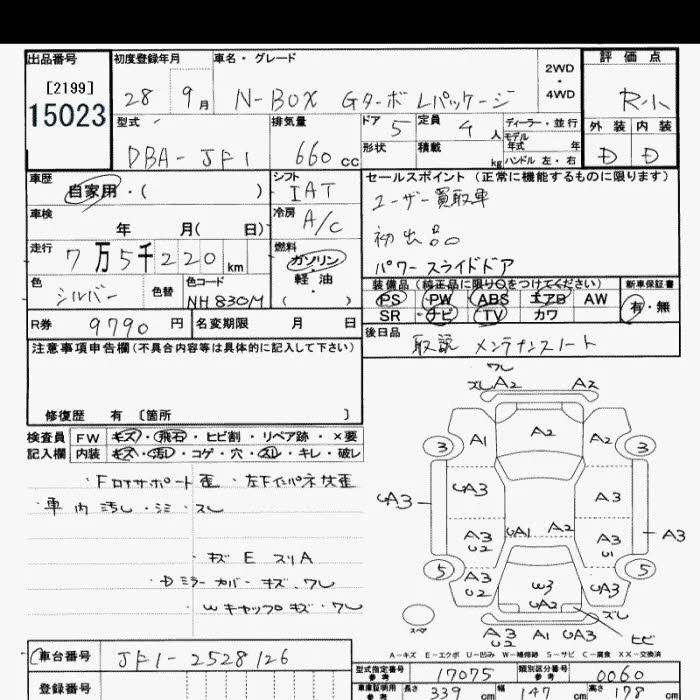 出品番号 初度登録年月 車名・グレード 2WD・4WD 評価点
[2199]
15023
28 9月 N-BOX GターボLパッケージ R小
型式 排気量 ドア 定員 ディーラー・並行 外装 内装
DBA-JF1 660cc 5 4人 モデル年式 年 D D
形状 積載 kg ハンドル 左・右
車歴 シフト セールスポイント (正常に機能するものに限ります)
自家用・( ) IAT ユーザー買取車
車検 冷房
年 月( 日) A/C 初出品。
走行 燃料
7万5千220km ガソリン・軽油 パワースライドドア
色 色替 色コード ( ) 装備品(純正品に限り○をつけてください) 新車保証書
シルバー NH830M PS PW ABS エアB AW 有・無
SR ナビ TV カワ
R券 9790円 名変期限 月 日 後日品
取説 メンテナンスノート
注意事項申告欄(不具合内容等は具体的に記入して下さい)
修復歴 有 〔箇所 〕
検査員 FW キズ・飛石・ヒビ割・リペア跡・×要
記入欄 内装 キズ・汚し・コゲ・穴・スレ・キレ・破レ
・左Fインパネ枝歪
・車内汚し・シミ・スレ
・キズEスリA
・Dミラーカバーキズ、ワレ
・Wキャップ0キズ・ワレ
ワレ
スレ A2 A2
3 A1 A2 3
UA3 UA3 A3 A3
A3 U2 UA1 A2 A3 U1
5 A3 U2 W3 UA3 5
UA2 ズレ
スペア A3 U2 A1 UA3 ヒビ
A-キズ E-エクボ U-凹み W-補修跡 S-サビ C-腐食 XX-交換済
車台番号 JF1-2528126
型式指定番号 参考 17075 類別区分番号 参考 0060
登録番号
車庫証明用 参考 長さ 339cm 幅 147cm 高さ 178cm